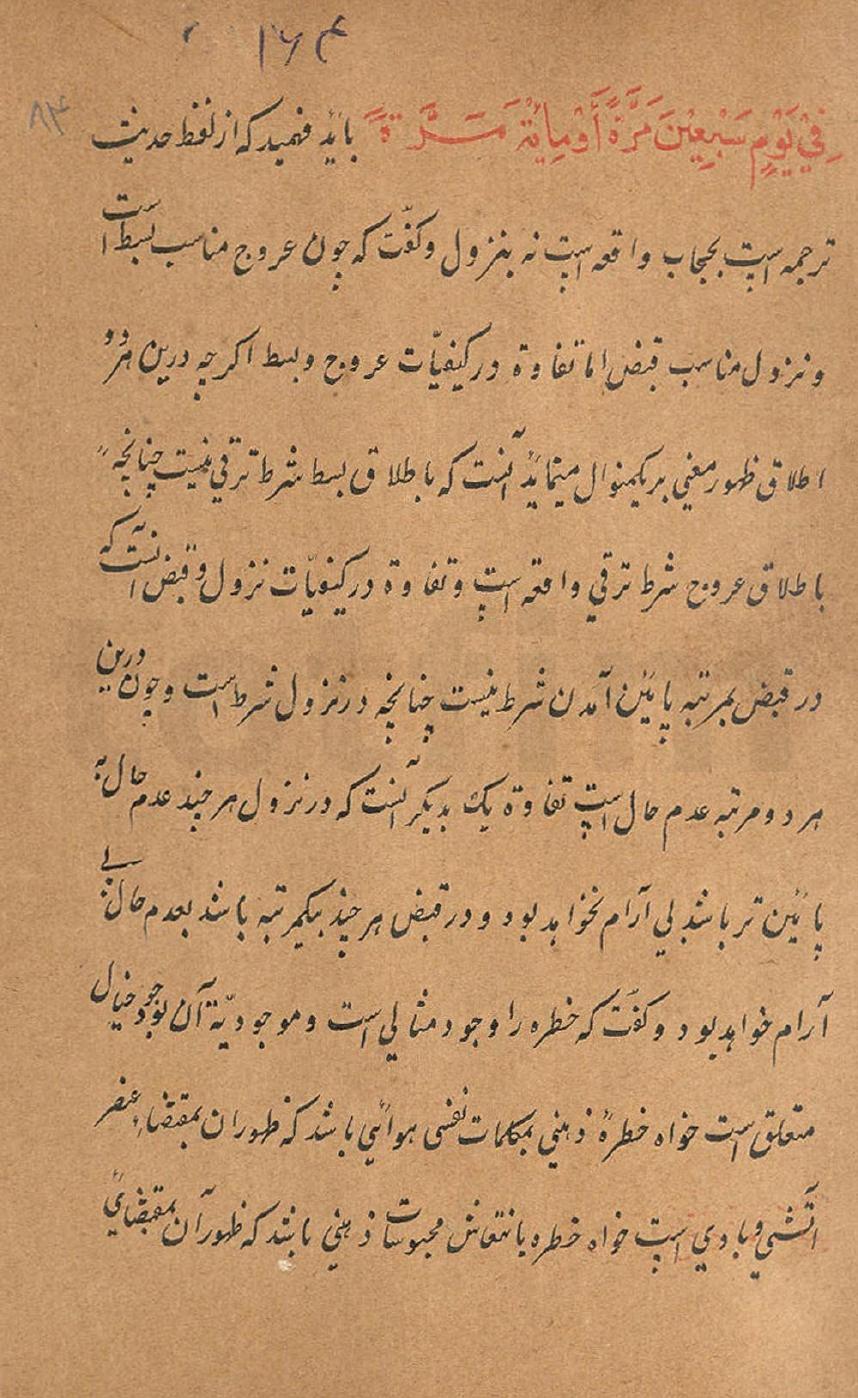 ۱۶۴
۸۳
فِيْ يَوْمٍ سَبْعِيْنَ مَرَّةً أَوْمِائَةَ مَرَّةٍ بايد فهميد كه از لفظ حديث
ترجمه است بحجاب واقعه است نه بنزول وگفت كه چون عروج مناسب بسط است
ونزول مناسب قبض اما تفاوة در كيفيّات عروج وبسط اگر چه درين هر دو
اطلاق ظهور معني بريكمنوال مينمايد آنست كه باطلاق بسط شرط ترقي نيست چنانچه
باطلاق عروج شرط ترقي واقعه است وتفاوة در كيفيّات نزول وقبض آنست كه
در قبض بمرتبه پائين آمدن شرط نيست چنانچه در نزول شرط است وچون درين
هر دو مرتبه عدم حال است تفاوة يك بديگر آنست كه در نزول هر چند عدم حال به
پائين تر باشد بي آرام نخواهد بود و در قبض هر چند بيكمرتبه باشد بعدم حال بي
آرام خواهد بود وگفت كه خطره را وجود مثالي است وموجوديّة آن بوجود خيال
متعلق است خواه خطرهٔ ذهني بمكلمات نفسي هوائي باشد كه ظهور آن بمقتضاء عنصر
آتشي وبادي است خواه خطره بانتعاش محبوسات ذهني باشد كه ظهور آن بمقتضاي